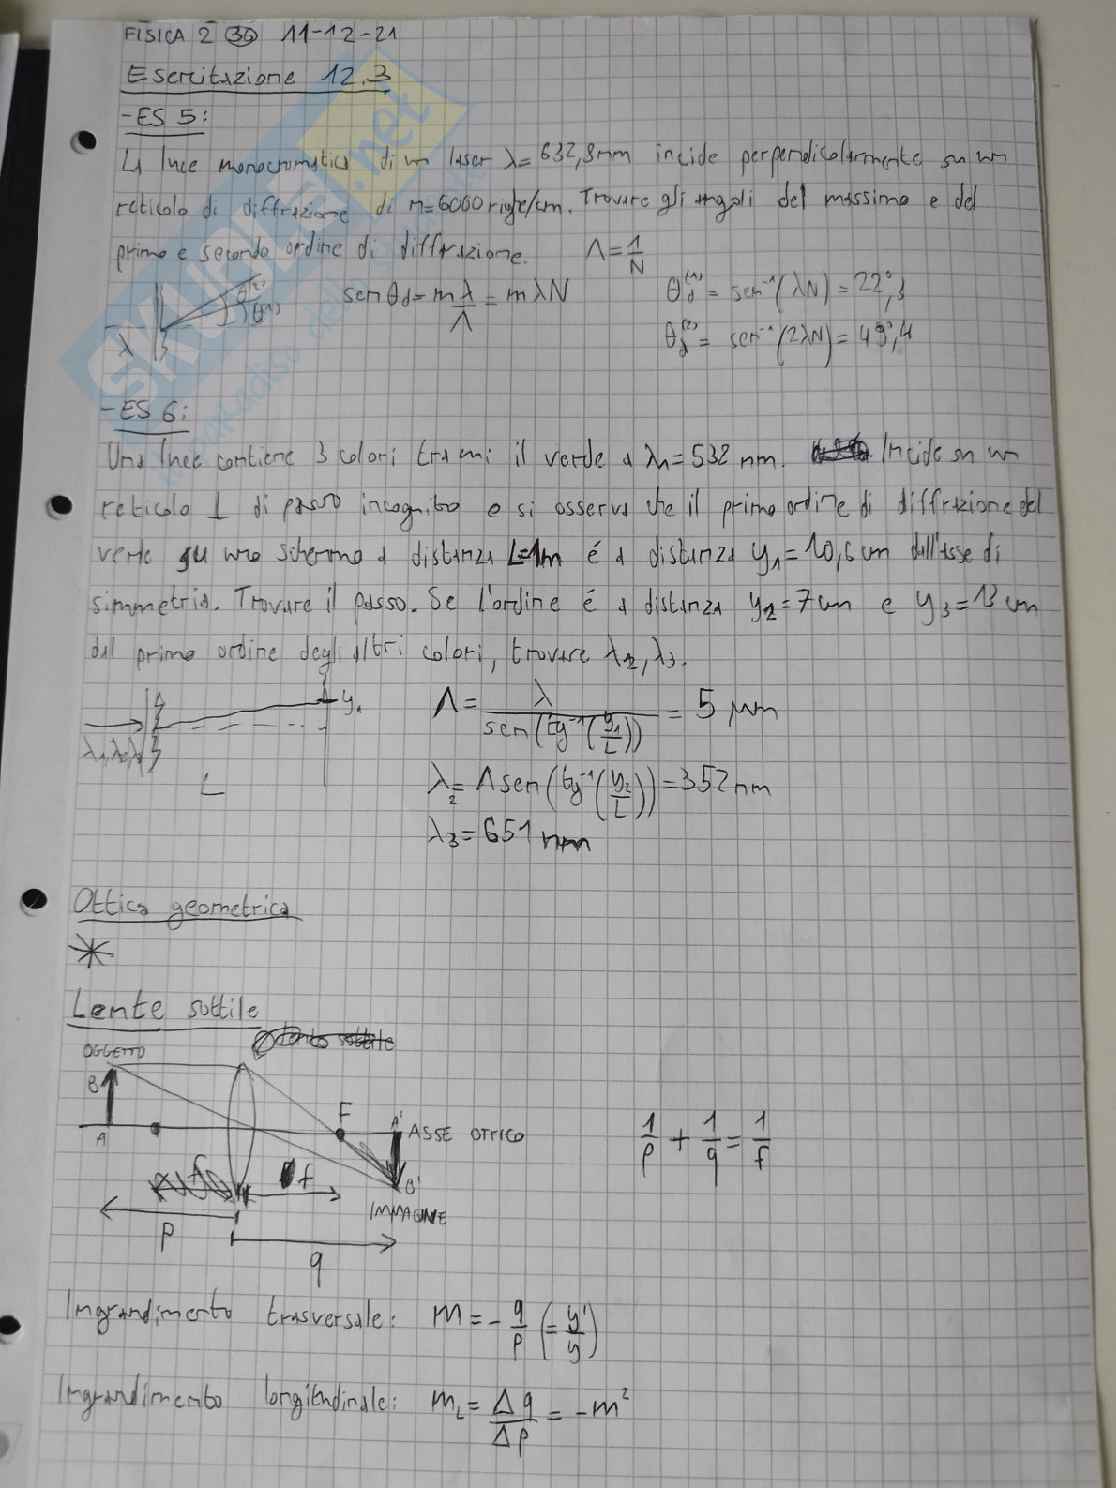 FISICA 2 (36) 11-12-21
Esercitazione 12.3
-ES 5:
La luce monocromatica di un laser λ=632,8nm incide perpendicolarmente su un
reticolo di diffrazione di n=6000 righe/cm. Trovare gli angoli del massimo e del
primo e secondo ordine di diffrazione. Λ=1/N
θ⁽²⁾ θ⁽¹⁾ λ
senθd=mλ/Λ=mλN
θd⁽¹⁾= sen⁻¹(λN)=22°,3
θd⁽²⁾= sen⁻¹(2λN)=49°,4
-ES 6:
Una luce contiene 3 colori tra cui il verde a λ1=532 nm. Incide su un
reticolo ⊥ di passo incognito e si osserva che il primo ordine di diffrazione del
verde su uno schermo a distanza L=1m é a distanza y1=10,6cm dall'asse di
simmetria. Trovare il passo. Se l'ordine é a distanza y2=7cm e y3=13cm
dal primo ordine degli altri colori, trovare λ2,λ3.
y1
λ1,λ2,λ3
L
Λ= λ/sen(tg⁻¹(y1/L)) = 5 μm
λ2= Λsen(tg⁻¹(y2/L))=352nm
λ3=651 nm
Ottica geometrica
*
Lente sottile
OGGETTO
B
A F A' ASSE OTTICO
1/p + 1/q = 1/f
f B'
IMMAGINE
p
q
Ingrandimento trasversale: m=-q/p (=y'/y)
Ingrandimento longitudinale: mL=Δq/Δp=-m²
SKUOLA.net